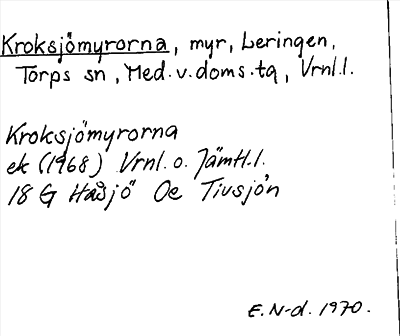 Kroksjömyrorna, myr, Leringen,
Torps sn, Med.v.doms.tg, Vrnl.l.
Kroksjömyrorna
ek (1968) Vrnl. o. Jämtl.l.
18 G Håsjö Oe Tivsjön
E. N-d. 1970.